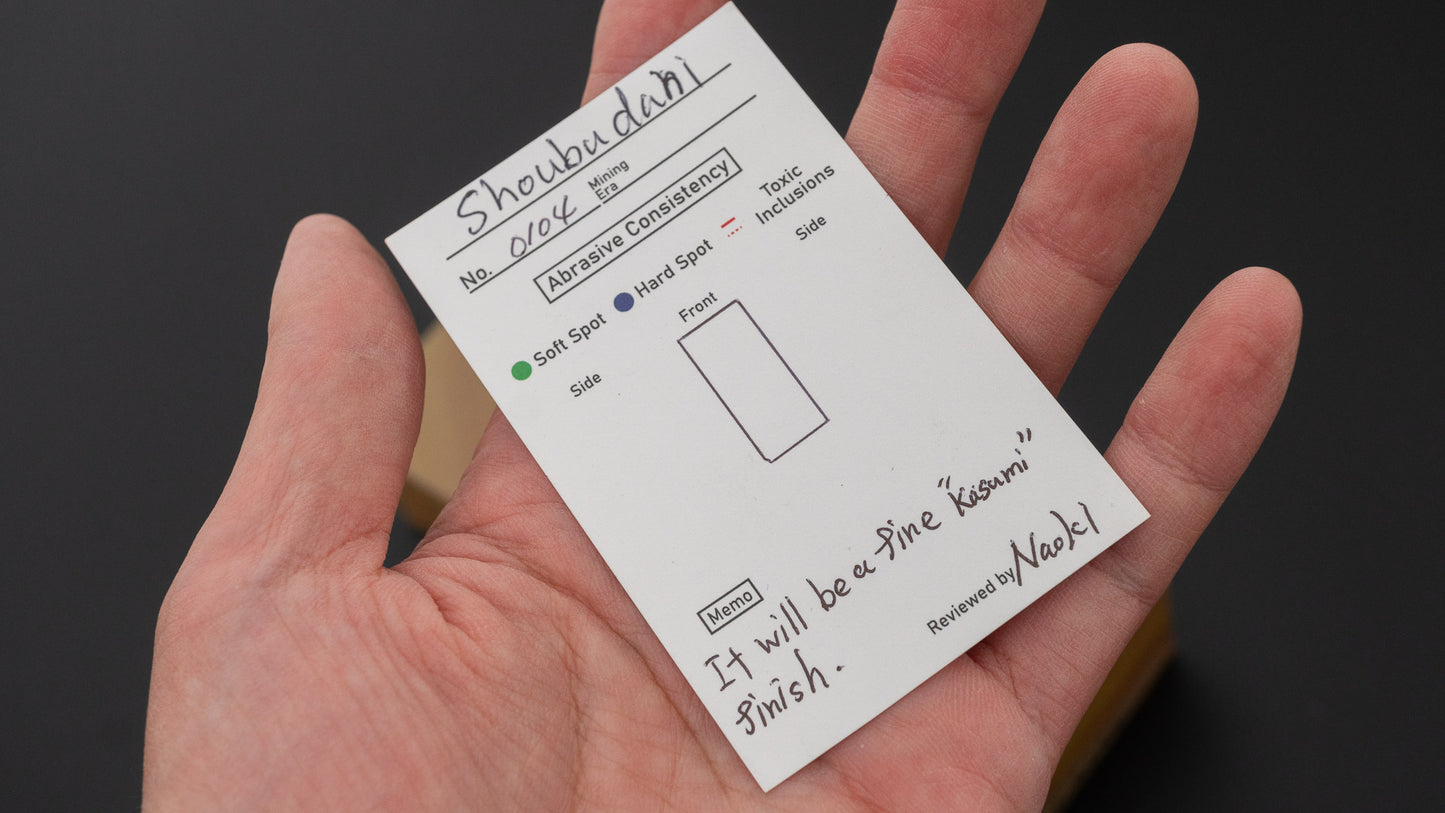 Shoubudani
No. 0104 Mining Era
Abrasive Consistency
Soft Spot Hard Spot Toxic Inclusions
Side Front Side
Memo
It will be a fine "Kasumi"
finish.
Reviewed by Naoki